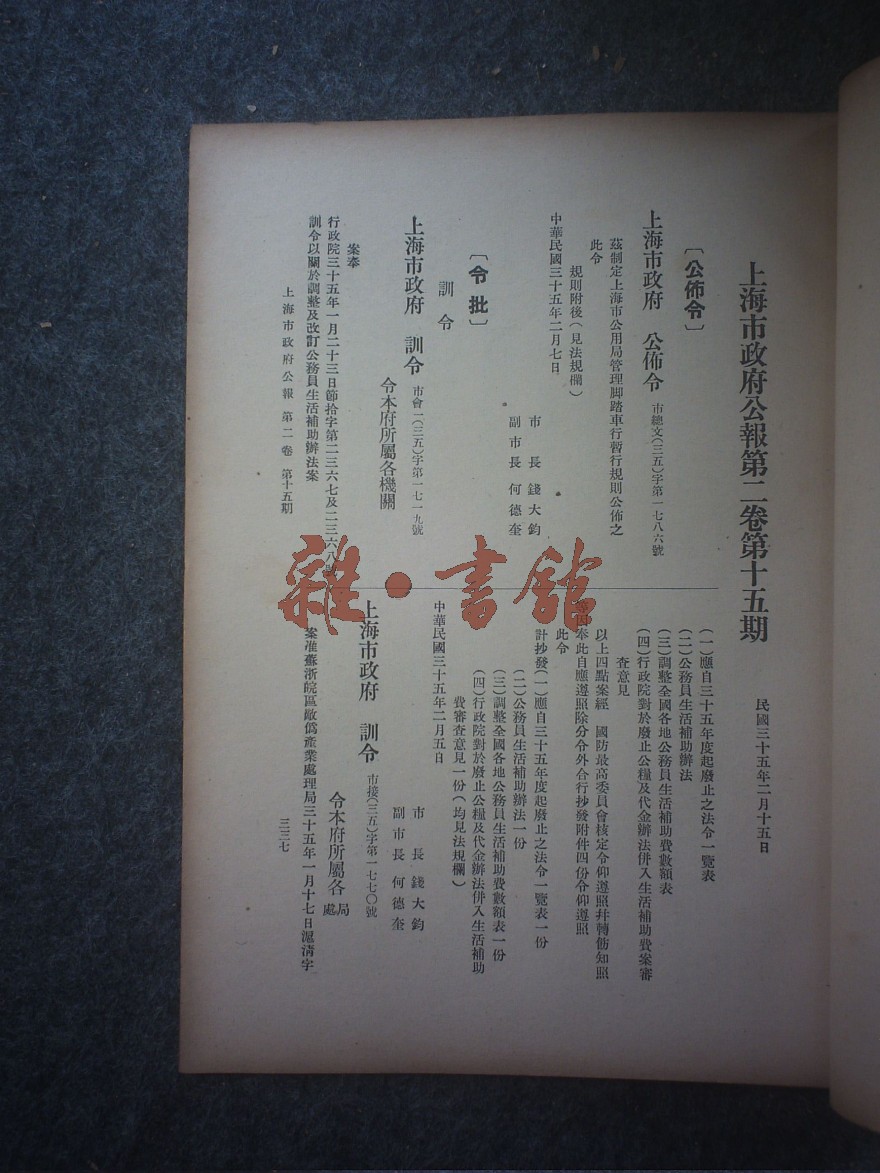 上海市政府公報第二卷第十五期
民國三十五年二月十五日
〔公佈令〕
上海市政府　公佈令
市總文(三五)字第一七八六號
茲制定上海市公用局管理脚踏車行暫行規則公佈之
此令
規則附後(見法規欄)
中華民國三十五年二月七日
市長　錢大鈞
副市長　何德奎
〔令批〕
訓令
上海市政府　訓令
市會一(三五)字第一七一九號
令本府所屬各機關
案奉
行政院三十五年一月二十三日節拾字第二三六七及二三六八號
訓令以關於調整及改訂公務員生活補助辦法案
(一)應自三十五年度起廢止之法令一覽表
(二)公務員生活補助辦法
(三)調整全國各地公務員生活補助費數額表
(四)行政院對於廢止公糧及代金辦法併入生活補助費案審
查意見
以上四點案經　國防最高委員會核定令仰遵照幷轉飭知照
等因奉此自應遵照除分令外合行抄發附件四份令仰遵照
此令
計抄發(一)應自三十五年度起廢止之法令一覽表一份
(二)公務員生活補助辦法一份
(三)調整全國各地公務員生活補助費數額表一份
(四)行政院對於廢止公糧及代金辦法併入生活補助
費審查意見一份(均見法規欄)
中華民國三十五年二月五日
市長　錢大鈞
副市長　何德奎
上海市政府　訓令
市接(三五)字第一七七〇號
令本府所屬各局處
案准蘇浙皖區敵僞產業處理局三十五年一月十七日滬淸字
上海市政府公報　第二卷　第十五期
三三七
雜·書館